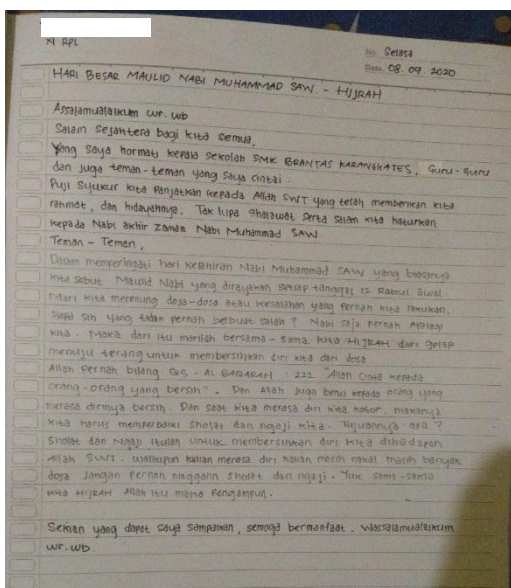 XI RPL
No. Selasa
Date. 08. 09. 2020
HARI BESAR MAULID NABI MUHAMMAD SAW. - HIJRAH
Assalamualaikum wr. wb
Salam sejahtera bagi kita semua,
Yang saya hormati kepala sekolah SMK BRANTAS KARANGKATES, Guru-guru
dan juga teman-teman yang saya cintai.
Puji syukur kita panjatkan kepada Allah SWT yang telah memberikan kita
rahmat, dan hidayahnya. Tak lupa shalawat serta salam kita haturkan
kepada Nabi akhir zaman Nabi Muhammad SAW.
Teman - Teman,
Dalam memperingati hari kelahiran Nabi Muhammad SAW yang biasanya
kita sebut Maulid Nabi yang dirayakan setiap tanggal 12 Rabiul awal
Mari kita merenung dosa-dosa atau kesalahan yang pernah kita lakukan,
siapa sih yang tidak pernah berbuat salah ? Nabi saja pernah Apalagi
kita. Maka dari itu marilah bersama-sama kita HIJRAH dari gelap
menuju terang untuk membersihkan diri kita dari dosa
Allah pernah bilang QS. AL BAQARAH : 222 "Allah cinta kepada
orang-orang yang bersih". Dan Allah juga benci kepada orang yang
merasa dirinya bersih. Dan saat kita merasa diri kita kotor, makanya
kita harus memperbaiki sholat dan ngaji kita. Tujuannya apa ?
Sholat dan Ngaji itulah untuk membersihkan diri kita dihadapan
Allah SWT. walaupun kalian merasa diri kalian masih nakal masih banyak
dosa jangan pernah ninggalin sholat dan ngaji. Yuk sama-sama
kita HIJRAH Allah itu maha Pengampun.
Sekian yang dapat saya sampaikan, semoga bermanfaat. Wassalamualaikum
wr. wb.